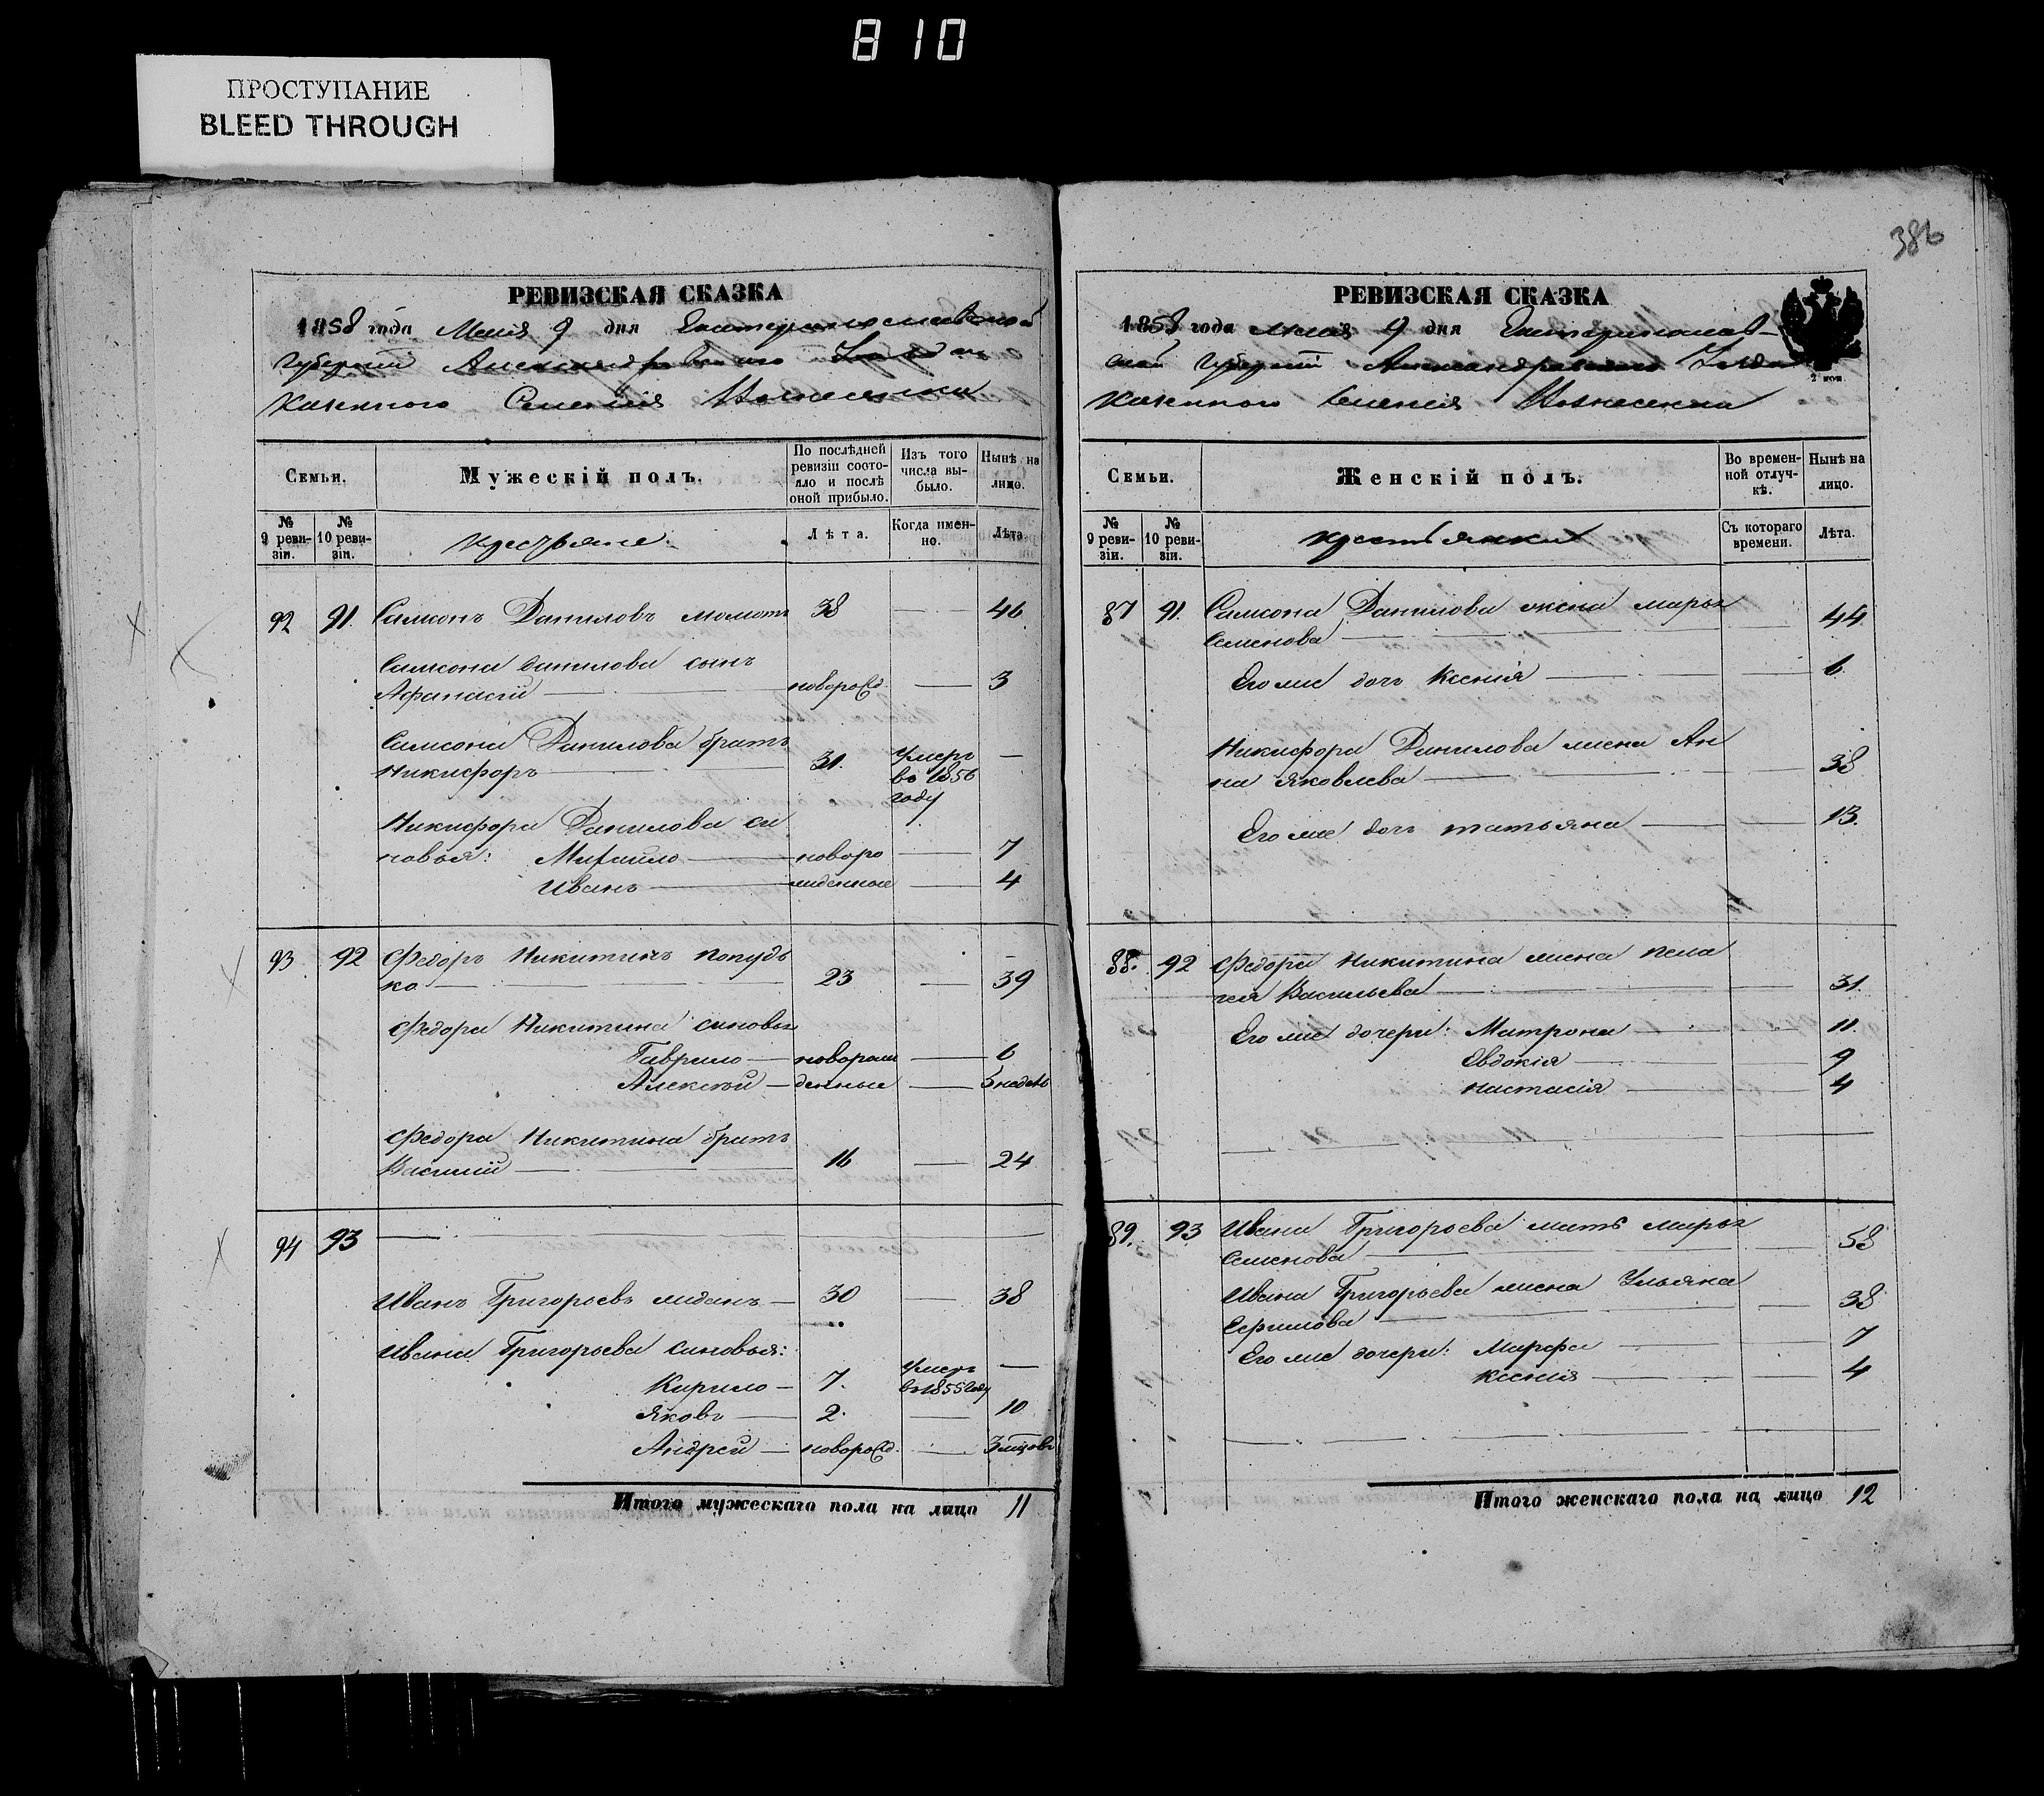 810
ПРОСТУПАНИЕ
BLEED THROUGH
386
РЕВИЗСКАЯ СКАЗКА
1858 года Маія 9 дня Екатеринославской
Губерніи Александровского Уезда
Казенного Селенія Вознесенки
Семьи.
Мужескій полъ.
По послѣдней ревизіи состояло и послѣ оной прибыло.
Изъ того числа выбыло.
Нынѣ на лицо.
№ 9 ревизіи.
№ 10 ревизіи.
крестьяне
Лѣта.
Когда именно.
Лѣта.
92 91. Самсонъ Даниловъ момотъ 38 — 46
Самсона данилова сынъ
Афанасій — новорожд. — 3
Самсона Данилова братъ
Никифоръ — 31. Умеръ —
въ 1856
году
Никифора Данилова си
новья: Михайло — новоро — 7
Иванъ — жденные — 4
93 92 Федоръ Никитинъ попудь
ко — 23 — 39
Федора Никитина синовья
Гаврило — новорож — 6
Алексѣй — денные — 5 недѣль
Федора Никитина братъ
Василій — 16 — 24
94 93 —
Иванъ Григорьевъ жданъ — 30 — 38
Ивана Григорьева синовья:
Кирило — 7. Умеръ —
въ 1855 году
Яковъ — 2. — 10
Андрей — новорожд. — 3 мѣцовъ
Итого мужескаго пола на лицо 11
РЕВИЗСКАЯ СКАЗКА
1858 года маія 9 дня Екатеринослав-
ской Губерніи Александровского Уезда
2 коп.
Казенного Селенія Вознесенки
Семьи.
Женскій полъ.
Во временной отлучкѣ.
Нынѣ на лицо.
№ 9 ревизіи.
№ 10 ревизіи.
крестьянки
Съ котораго времени.
Лѣта.
87 91. Самсона Данилова жена марья
Семенова — — 44
Его же дочь Ксенія — — 6
Никифора Данилова жена Ан
на Яковлева — — 38
Его же дочь татьяна — — 13.
88. 92 Федора Никитина жена пела
гея Васильева — — 31.
Его же дочери: Матрона — — 11.
Евдокія — — 9
настасія — — 4
89. 93 Ивана Григорьева мать марья
Семенова — — 58
Ивана Григорьева жена Ульяна
Ефимова — — 38
Его же дочери: Марфа — — 7
Ксенія — — 4
Итого женскаго пола на лицо 12